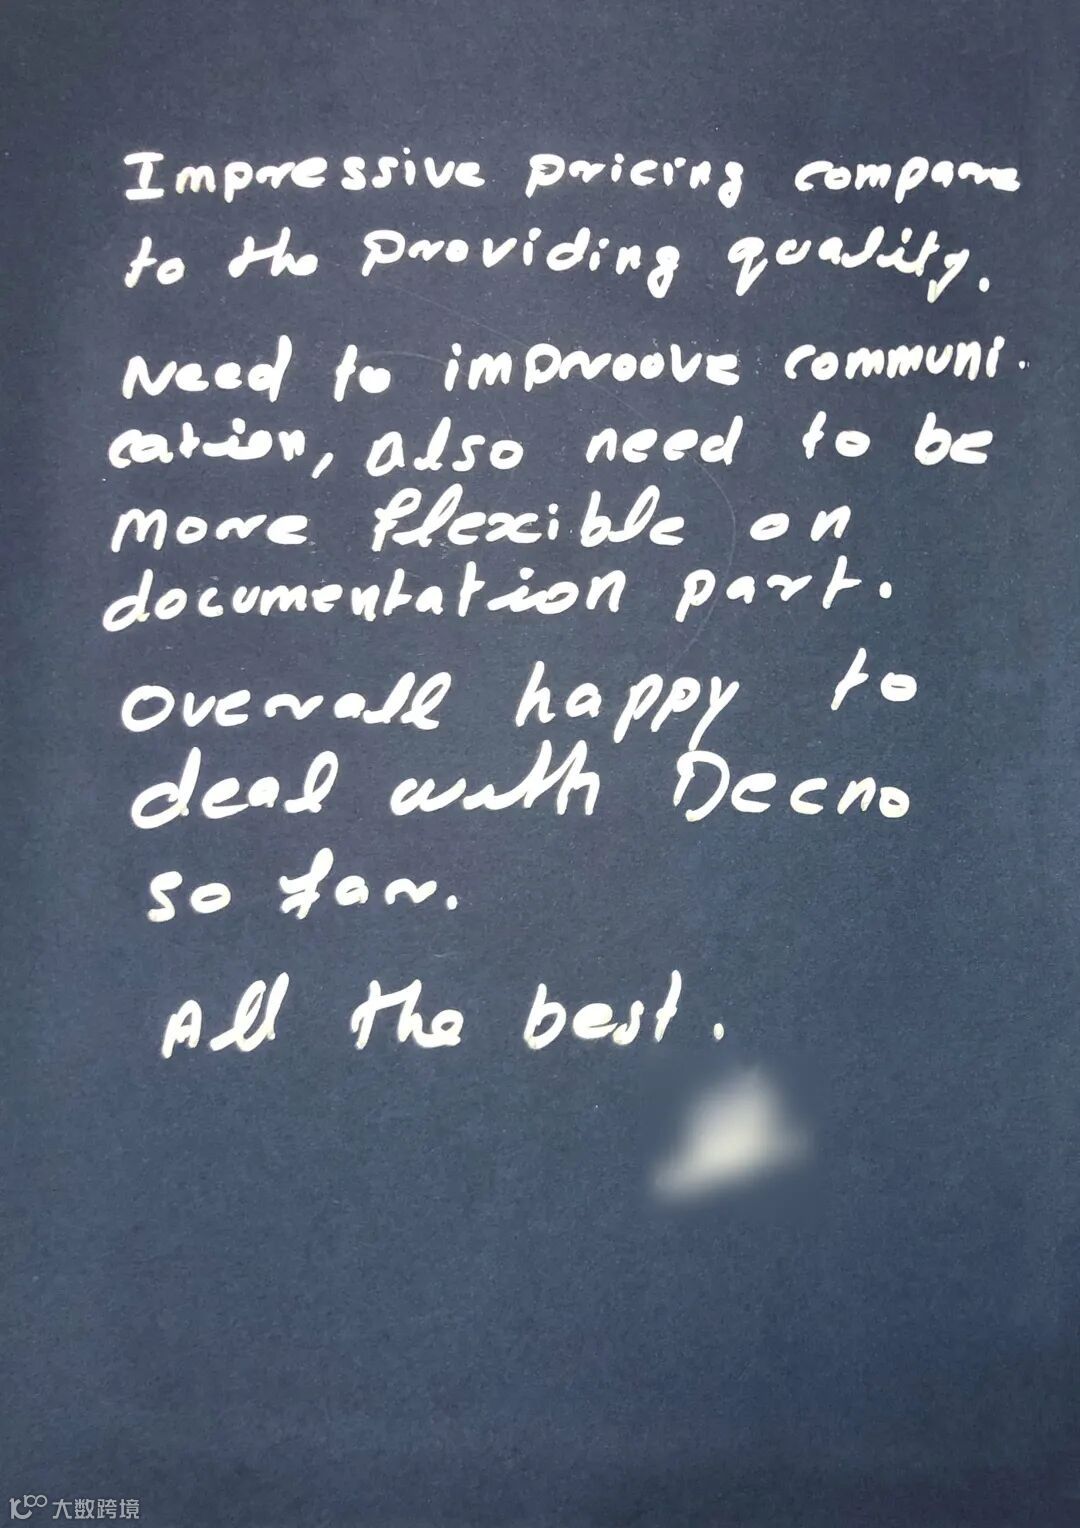 Impressive pricing compare
to the providing quality.
Need to improove communi.
cation, also need to be
more flexible on
documentation part.
Overall happy to
deal with Decno
so far.
All the best.
大数跨境